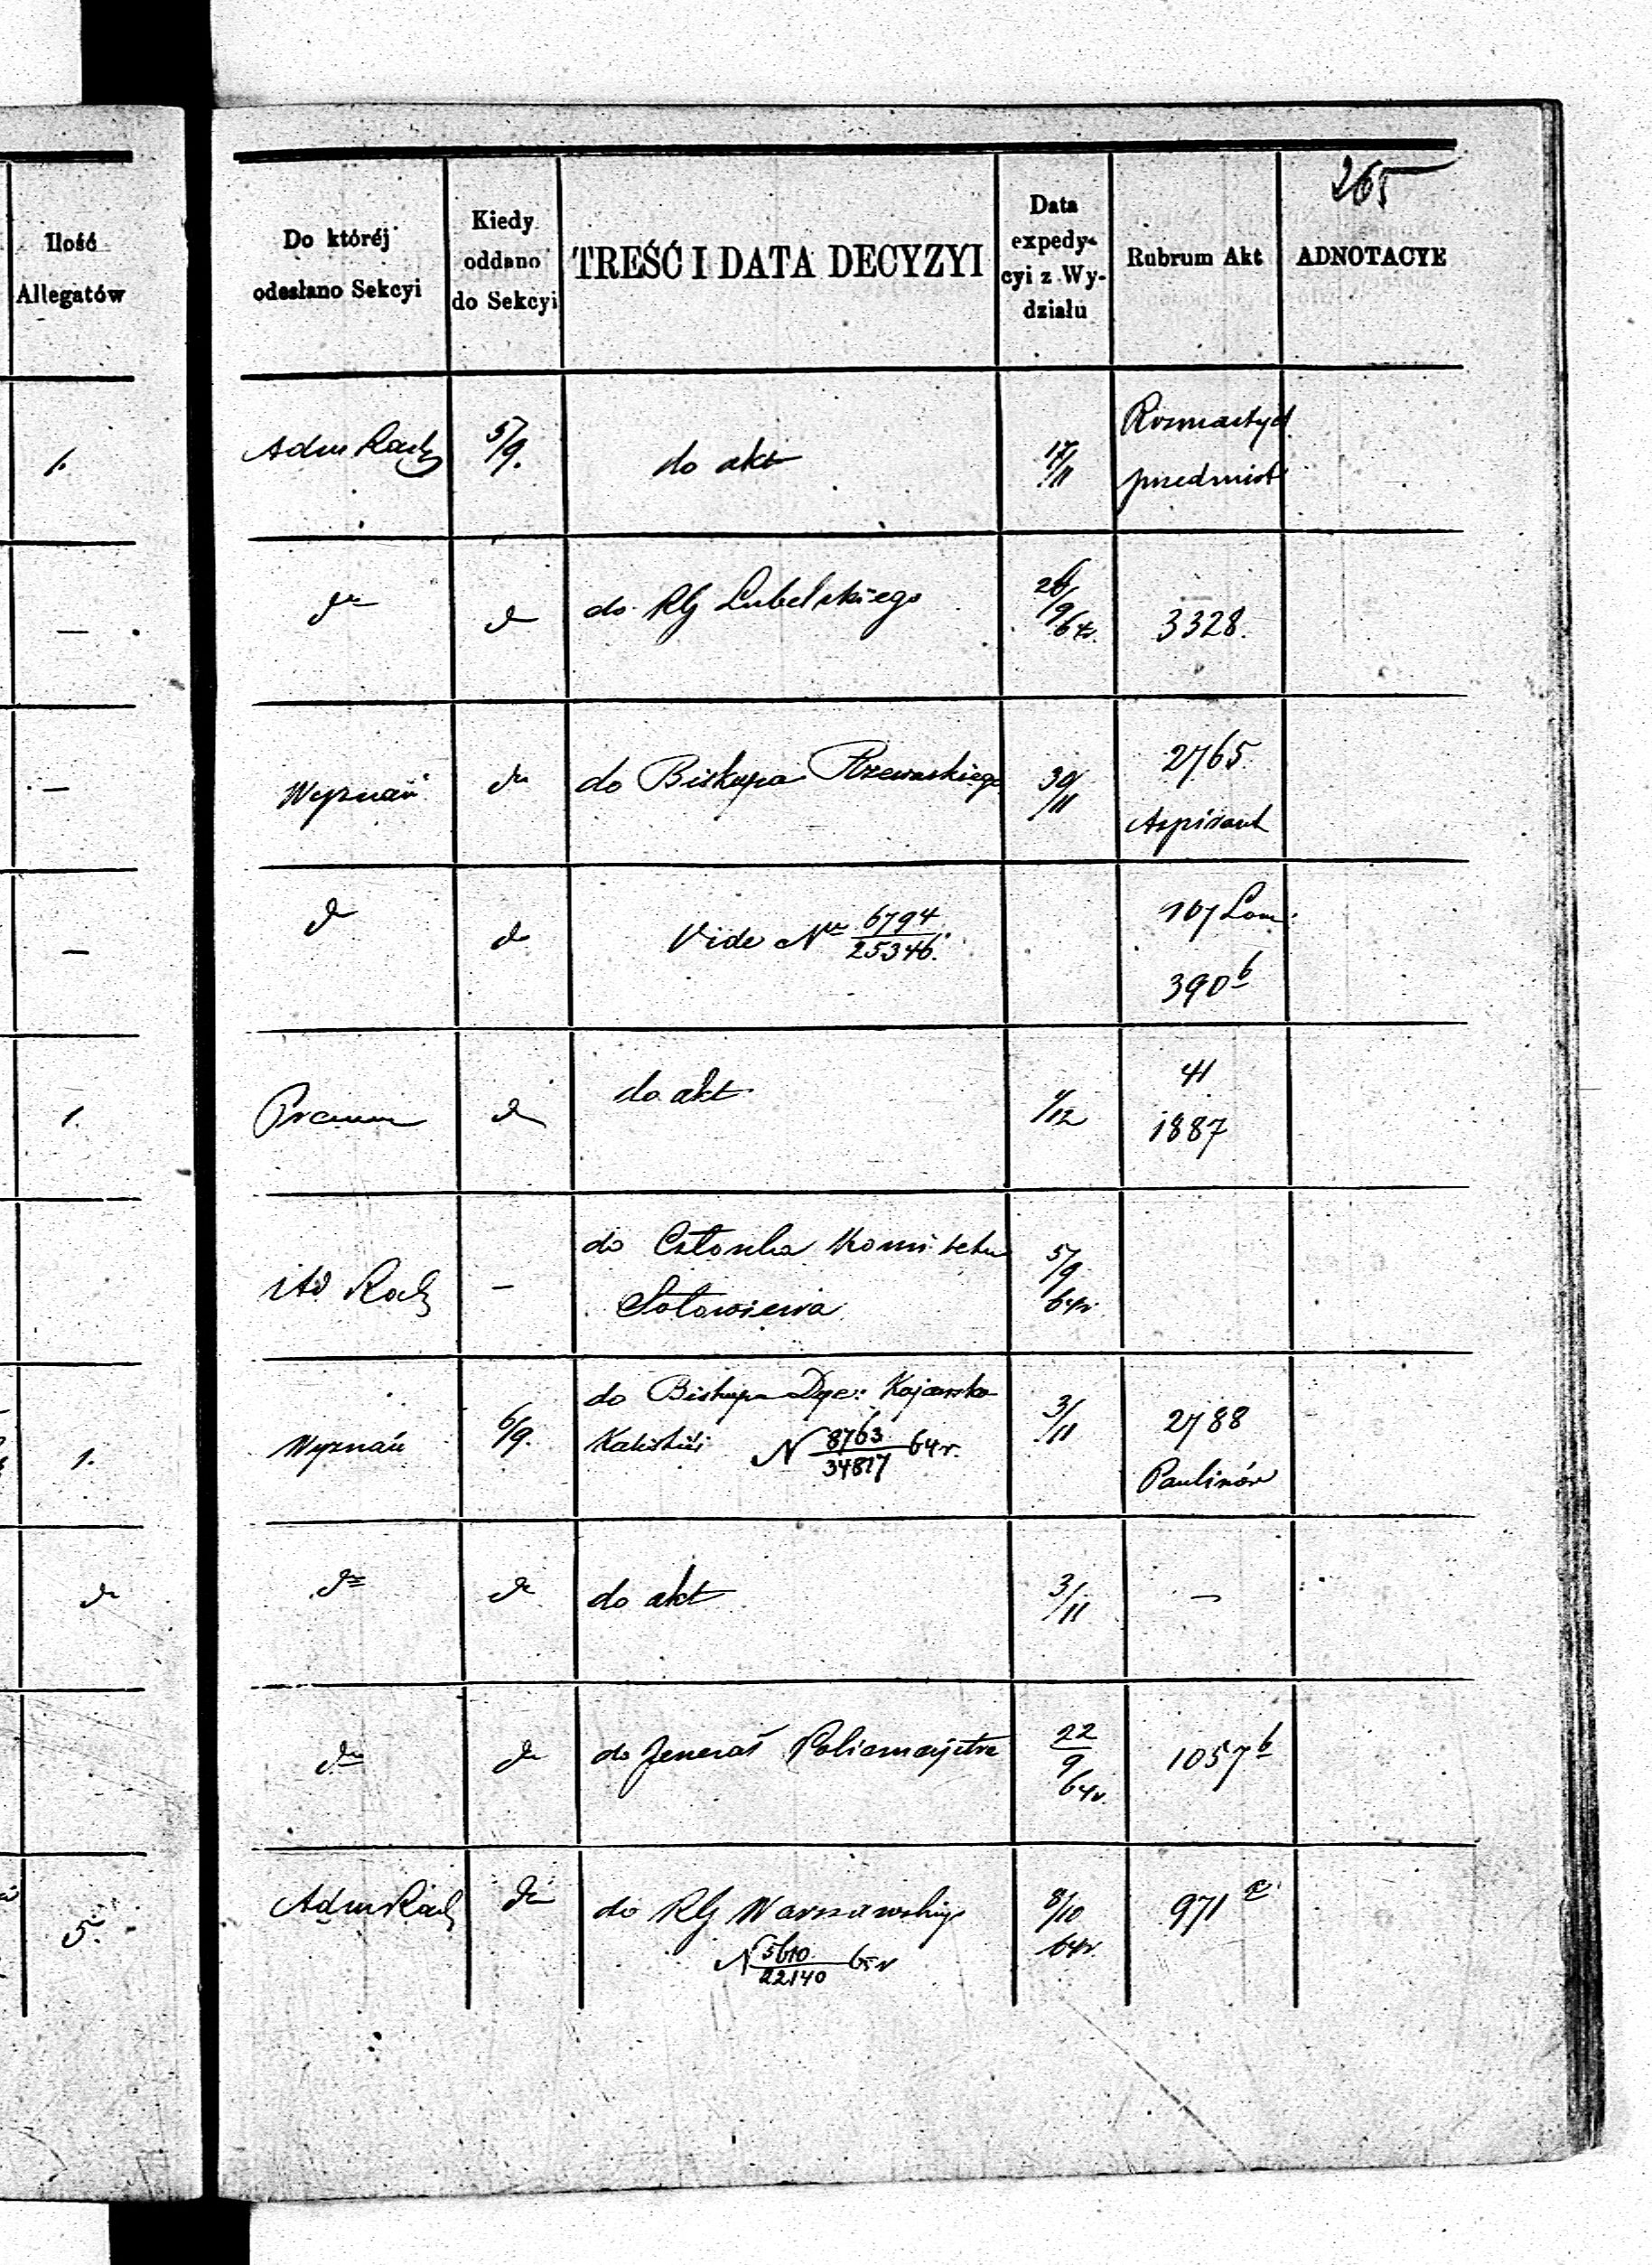 265
Ilość
Allegatów
Do któréj
odesłano Sekcyi
Kiedy
oddano
do Sekcyi
TREŚĆ I DATA DECYZYI
Data
expedy-
cyi z Wy-
działu
Rubrum Akt
ADNOTACYE
1.
5/9.
do akt
17/11
przedmiot
—
do RG Lubelskiego
9/64r.
3328.
—
Wyznań
do Biskupa
30/11
2765
Aspirant
—
Vide Nr 6794/25346.
107 Lom:
390 b
1.
do akt
/12
41
1887
—
do Członka Komitetu
Sołowiewa
5/9
64r.
1.
Wyznań
6/9.
do Biskupa Dyec: Kujawsko
Kaliskiéj N 8763/34817 64r.
3/11
2788
Paulinów
do akt
3/11
—
do Jenerał Policmajstra
22/9
64r.
1057 b
5.
Adm Rach
do RG Warszawskiego
N 5610/22140 65r
8/10
64r.
971